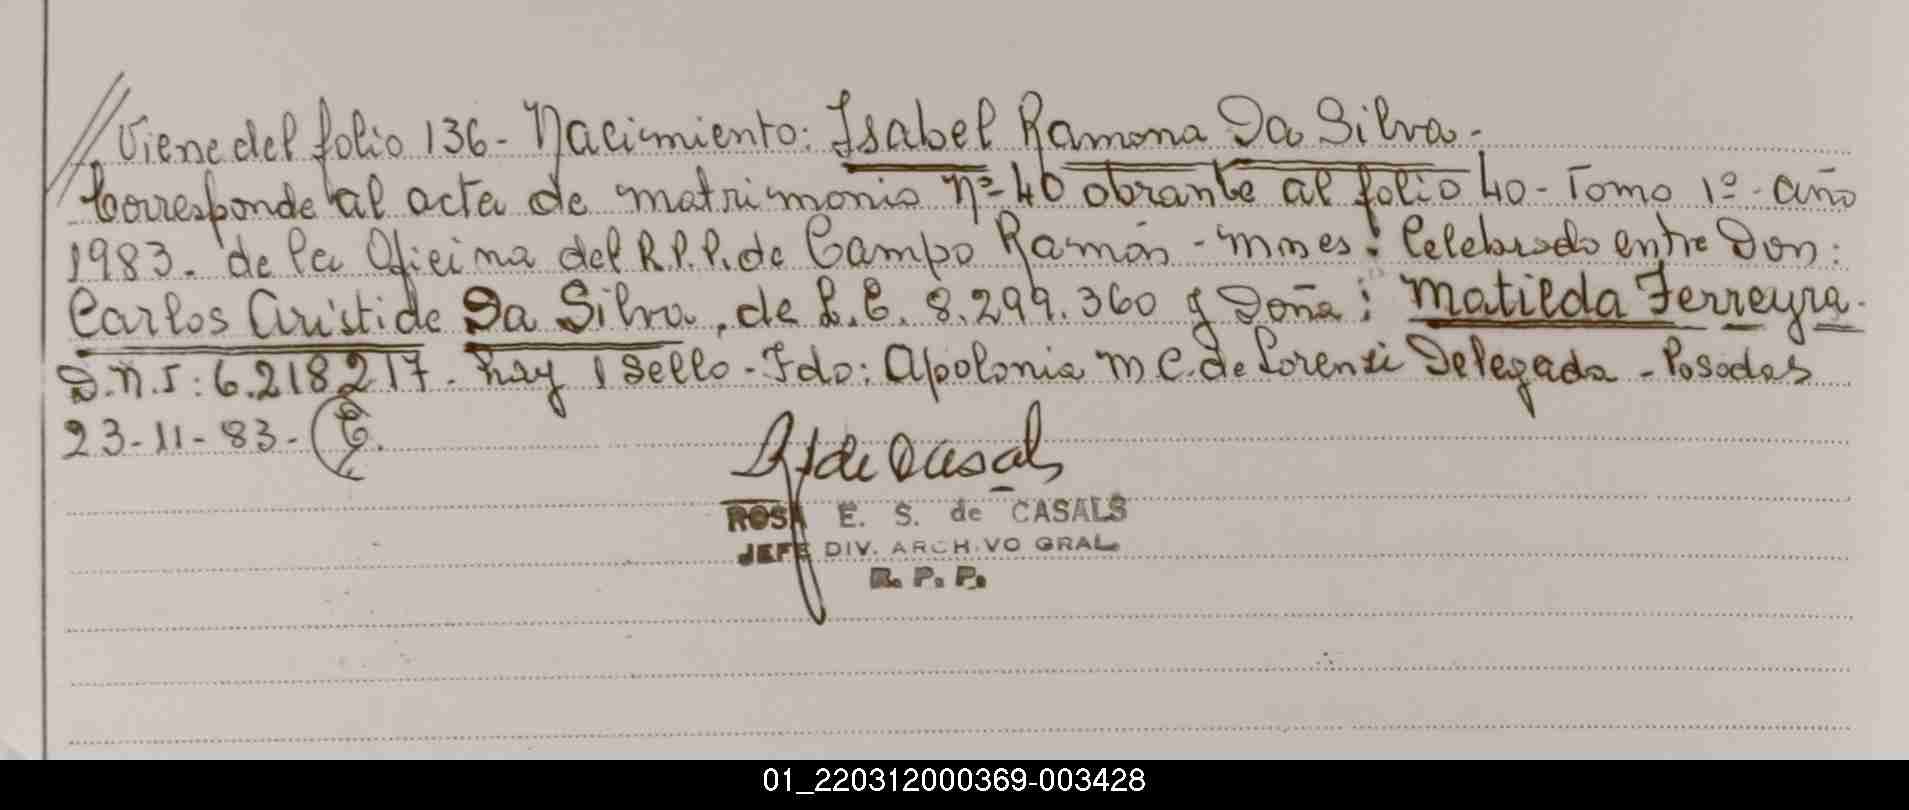 // Viene del folio 136 - Nacimiento: Isabel Ramona Da Silva -
Corresponde al acta de matrimonio Nº 40 obrante al folio 40 - Tomo 1º - año
1983. de la Oficina del R.P.P. de Campo Ramón - Mnes: Celebrado entre Don:
Carlos Aristide Da Silva, de L.E. 8.299.360 y Doña: Matilda Ferreyra -
D.N.I: 6.218217 - hay 1 sello - Fdo: Apolonia M C. de Lorenzi Delegada - Posadas
23-11-83 -
de Casals
ROSA E. S. de CASALS
JEFE DIV. ARCHIVO GRAL
R. P. P.
01_220312000369-003428